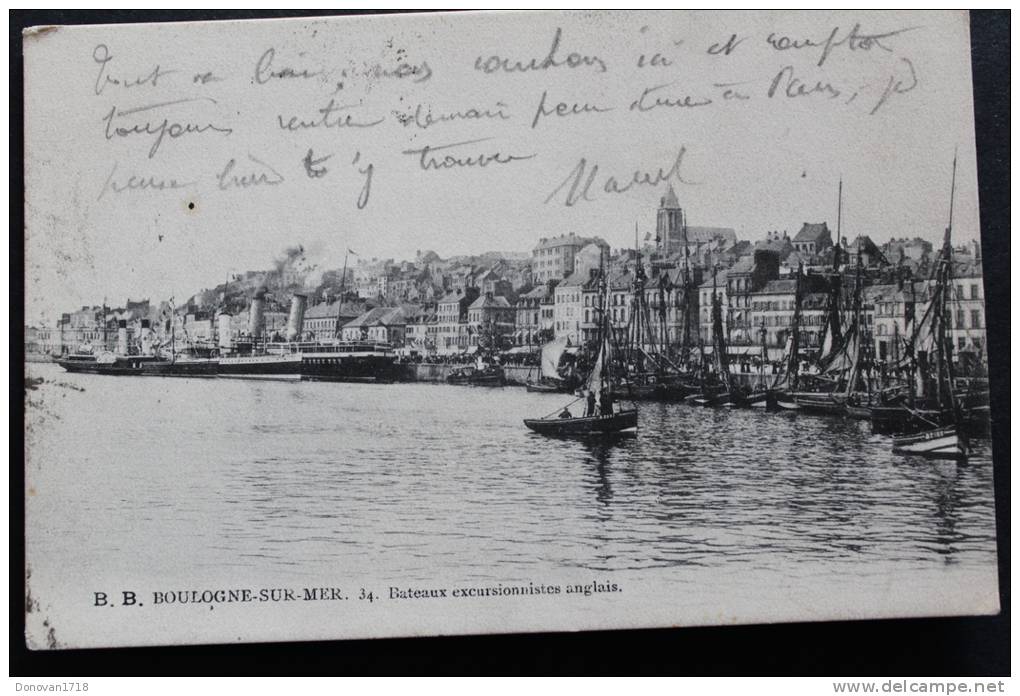 Tout va bien, nous couchons ici et comptons
toujours rentrer demain pour dîner à Paris, je
pense bien t'y trouver Marcel
B. B. BOULOGNE-SUR-MER. 34. Bateaux excursionnistes anglais.
Donovan1718
www.delcampe.net